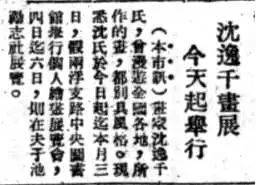 沈逸千畫展
今天起舉行
（本市訊）畫家沈逸千
氏，曾漫遊全國各地，所
作的畫，都別具風格。現
悉沈氏於今日起迄本月三
日，假兩浮支路中央圖書
館舉行個人繪畫展覽會，
四日迄六日，則在夫子池
勵志社展覽。